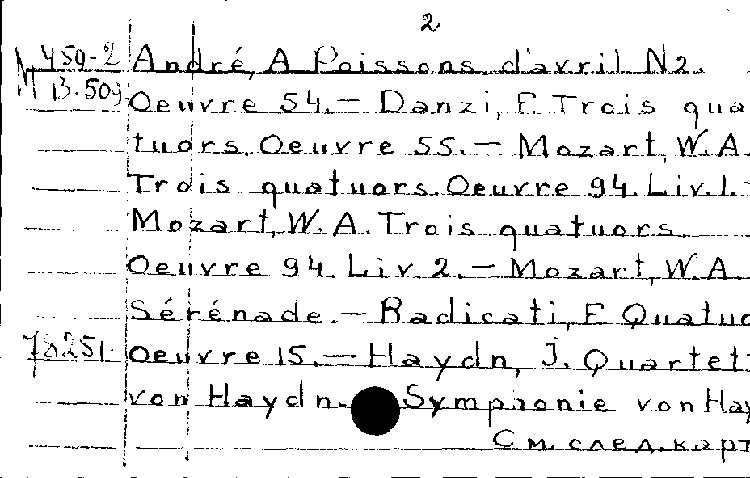 2.
М 459-2 André, A Poissons d'avril N2.
13.509 Oeuvre 54.— Danzi, F. Trois qua
tuors. Oeuvre 55.— Mozart, W. A.
Trois quatuors. Oeuvre 94. Liv. 1.-
Mozart, W. A. Trois quatuors.
Oeuvre 94. Liv. 2.— Mozart, W. A
Sérénade.— Radicati, F. Quatuo
Oeuvre 15.— Haydn, J. Quartet
von Haydn. Symphonie von Hay
См. след. карт